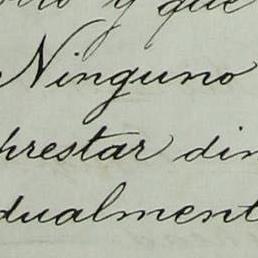 y que
Ninguno
prestar din
dualment